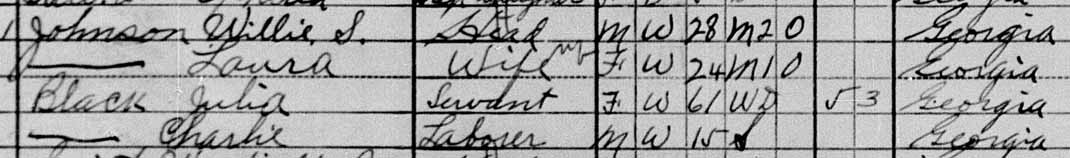 Johnson Willie S. Head M W 28 M2 0 Georgia
—— Laura Wife F W 24 M1 0 Georgia
Black Julia Servant F W 61 WD 5 3 Georgia
—— Charlie Laborer M W 15 S Georgia